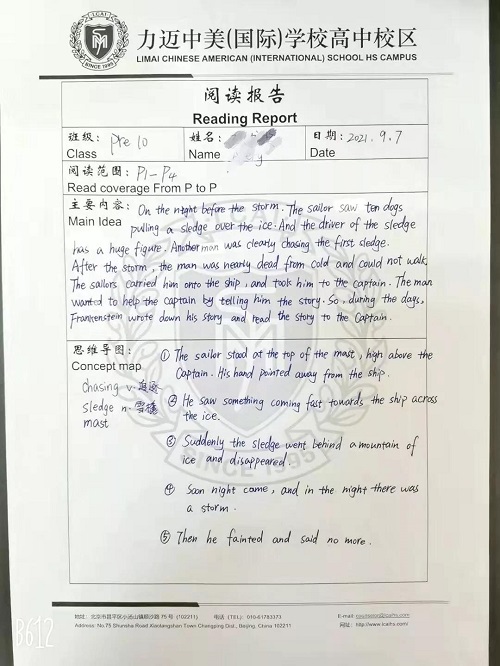 力迈中美(国际)学校高中校区
LIMAI CHINESE AMERICAN (INTERNATIONAL) SCHOOL HS CAMPUS
SINCE 1995
阅读报告
Reading Report
班级: Pre 10
Class
姓名:
Name
日期: 2021.9.7
Date
阅读范围: P1-P4
Read coverage From P to P
主要内容: On the night before the storm. The sailor saw ten dogs
Main Idea pulling a sledge over the ice. And the driver of the sledge
has a huge figure. Another man was clearly chasing the first sledge.
After the storm, the man was nearly dead from cold and could not walk.
The sailors carried him onto the ship, and took him to the captain. The man
wanted to help the captain by telling him the story. So, during the days,
Frankenstein wrote down his story and read the story to the Captain.
思维导图:
Concept map
chasing v. 追逐
sledge n. 雪橇
mast
① The sailor stood at the top of the mast, high above the
Captain. His hand pointed away from the ship.
② He saw something coming fast towards the ship across
the ice.
③ Suddenly the sledge went behind a mountain of
ice and disappeared.
④ Soon night came, and in the night there was
a storm.
⑤ Then he fainted and said no more.
SINCE 1995
地址: 北京市昌平区小汤山镇顺沙路75号 (102211) 电话 (TEL) 010-61783373
Address: No.75 Shunsha Road, Xiaotangshan Town Changping Dist., Beijing, China 102211
E-mail:
网址: http://www.lcaihs.com/
B612